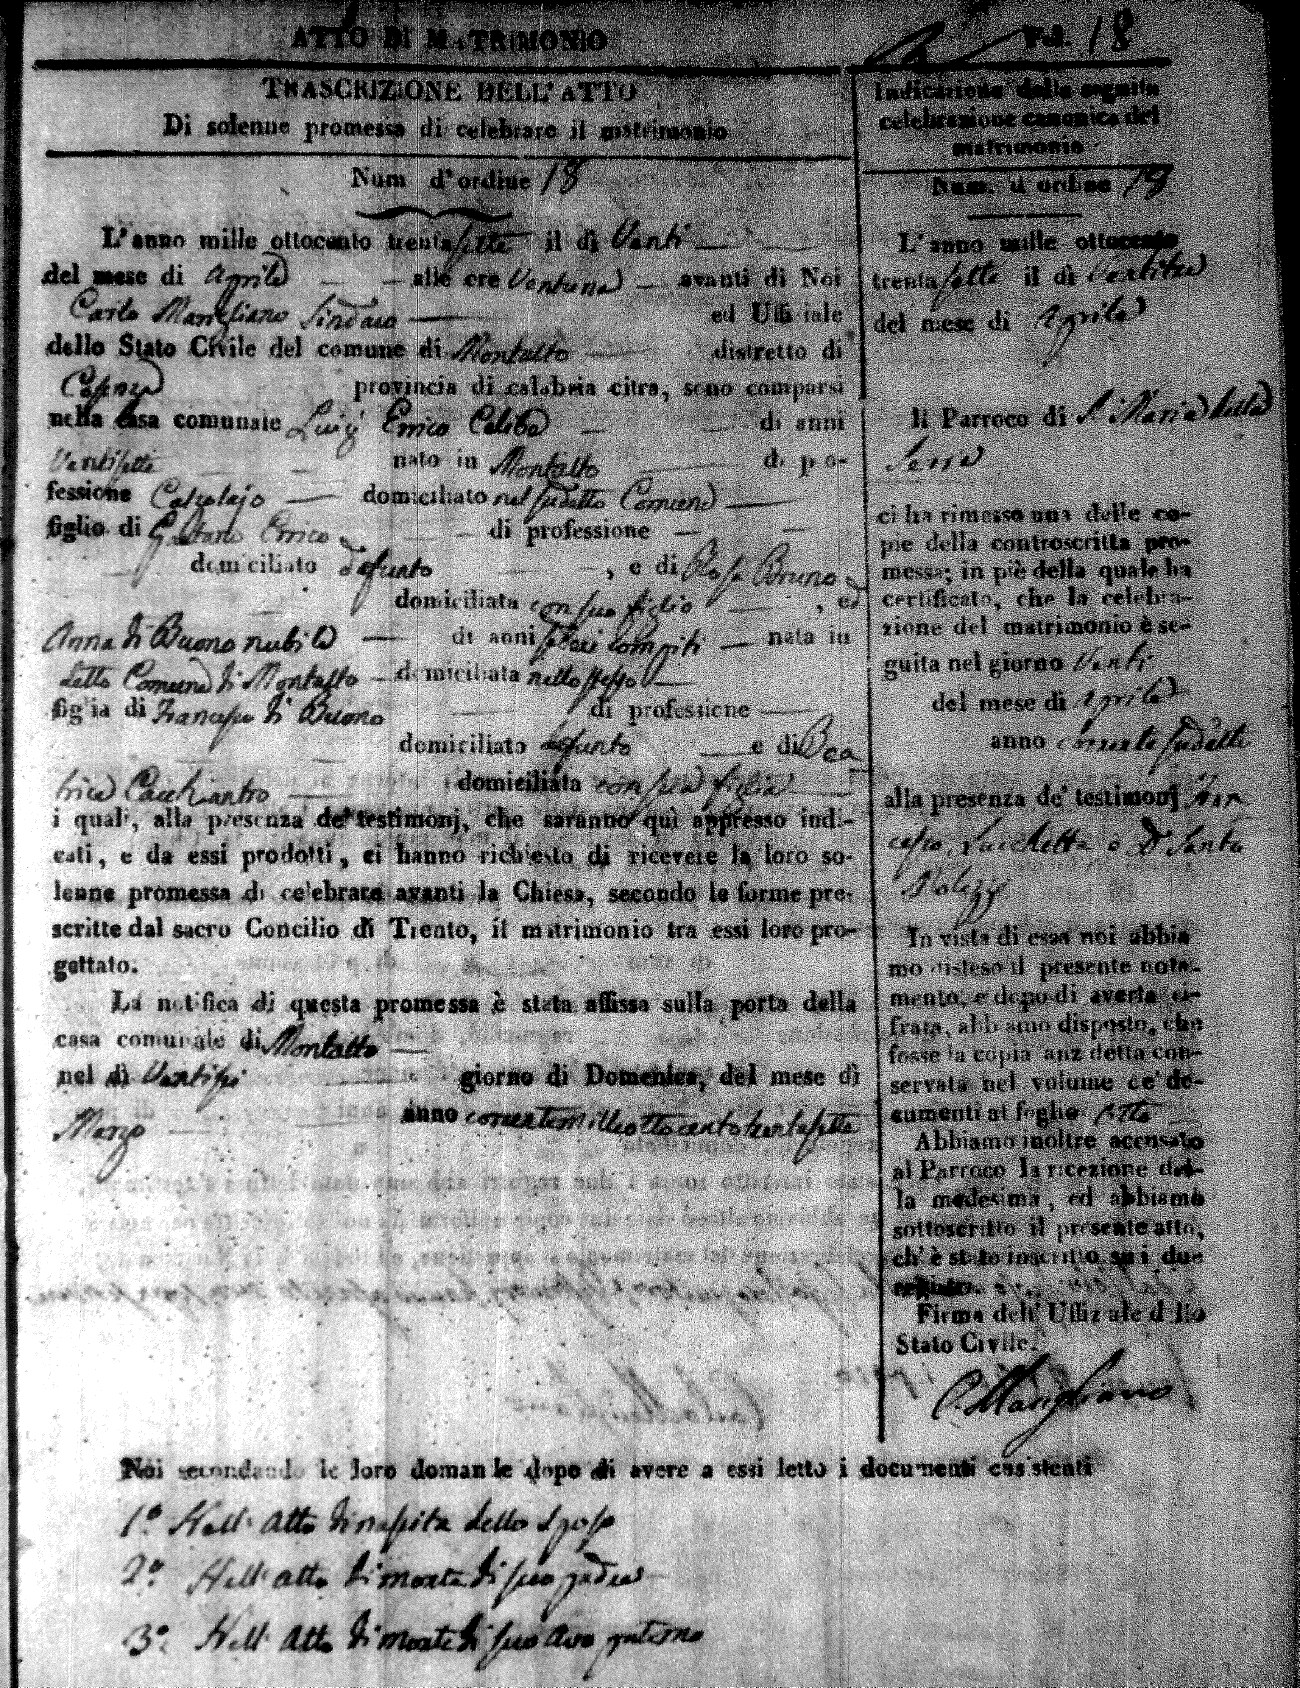 ATTO DI MATRIMONIO
Fol. 18
TRASCRIZIONE DELL'ATTO
Di solenne promessa di celebrare il matrimonio
Num d'ordine 18
L'anno mille ottocento trentasette il dì Venti
del mese di Aprile alle ore Ventuna avanti di Noi
Carlo Marigliano Sindaco ed Uffiziale
dello Stato Civile del comune di Montalto distretto di
Cosenza provincia di calabria citra, sono comparsi
nella casa comunale Luigi Errico Celibe di anni
Ventisette nato in Montalto di pro-
fessione Calzolajo domiciliato nel sudetto Comune
figlio di Gaetano Errico di professione
domiciliato defunto , e di Rosa Bruno
domiciliata con suo figlio , e
Anna di Buono nubile di anni sedeci compiti nata in
detto Comune di Montalto domiciliata nello stesso
figlia di Francesco di Buono di professione
domiciliato defunto e di Bea
trice domiciliata con sua figlia
i quali, alla presenza de' testimonj, che saranno quì appresso indi-
cati, e da essi prodotti, ci hanno richiesto di ricevere la loro so-
lenne promessa di celebrare avanti la Chiesa, secondo le forme pre-
scritte dal sacro Concilio di Trento, il matrimonio tra essi loro pro-
gettato.
La notifica di questa promessa è stata affissa sulla porta della
casa comunale di Montalto
nel dì Ventisei giorno di Domenica, del mese di
Marzo anno corrente mille ottocento trentasette
Indicazione della seguita
celebrazione canonica del
matrimonio
Num. d'ordine 18
L'anno mille ottocento
trentasette il dì Ventitre
del mese di Aprile
Il Parroco di S. Maria della
Serra
ci ha rimesso una delle co-
pie della controscritta pro-
messa; in piè della quale ha
certificato, che la celebra-
zione del matrimonio è se-
guita nel giorno Venti
del mese di Aprile
anno corrente sudetto
alla presenza de' testimonj Vin
cenzo e Dn Santo
In vista di essa noi abbia
mo disteso il presente nota-
mento, e dopo di averla ci-
frata, abbiamo disposto, che
fosse la copia anzidetta con-
servata nel volume de' do-
cumenti al foglio
Abbiamo inoltre accusato
al Parroco la ricezione del-
la medesima, ed abbiamo
sottoscritto il presente atto,
ch'è stato inscritto su i due
registri.
Firma dell'Uffiziale dello
Stato Civile.
C. Marigliano
Noi secondando le loro domande dopo di avere a essi letto i documenti consistenti
1.º Nell'atto di nascita dello Sposo
2.º Nell'atto di morte di suo padre
3.º Nell'Atto di morte di suo Avo paterno